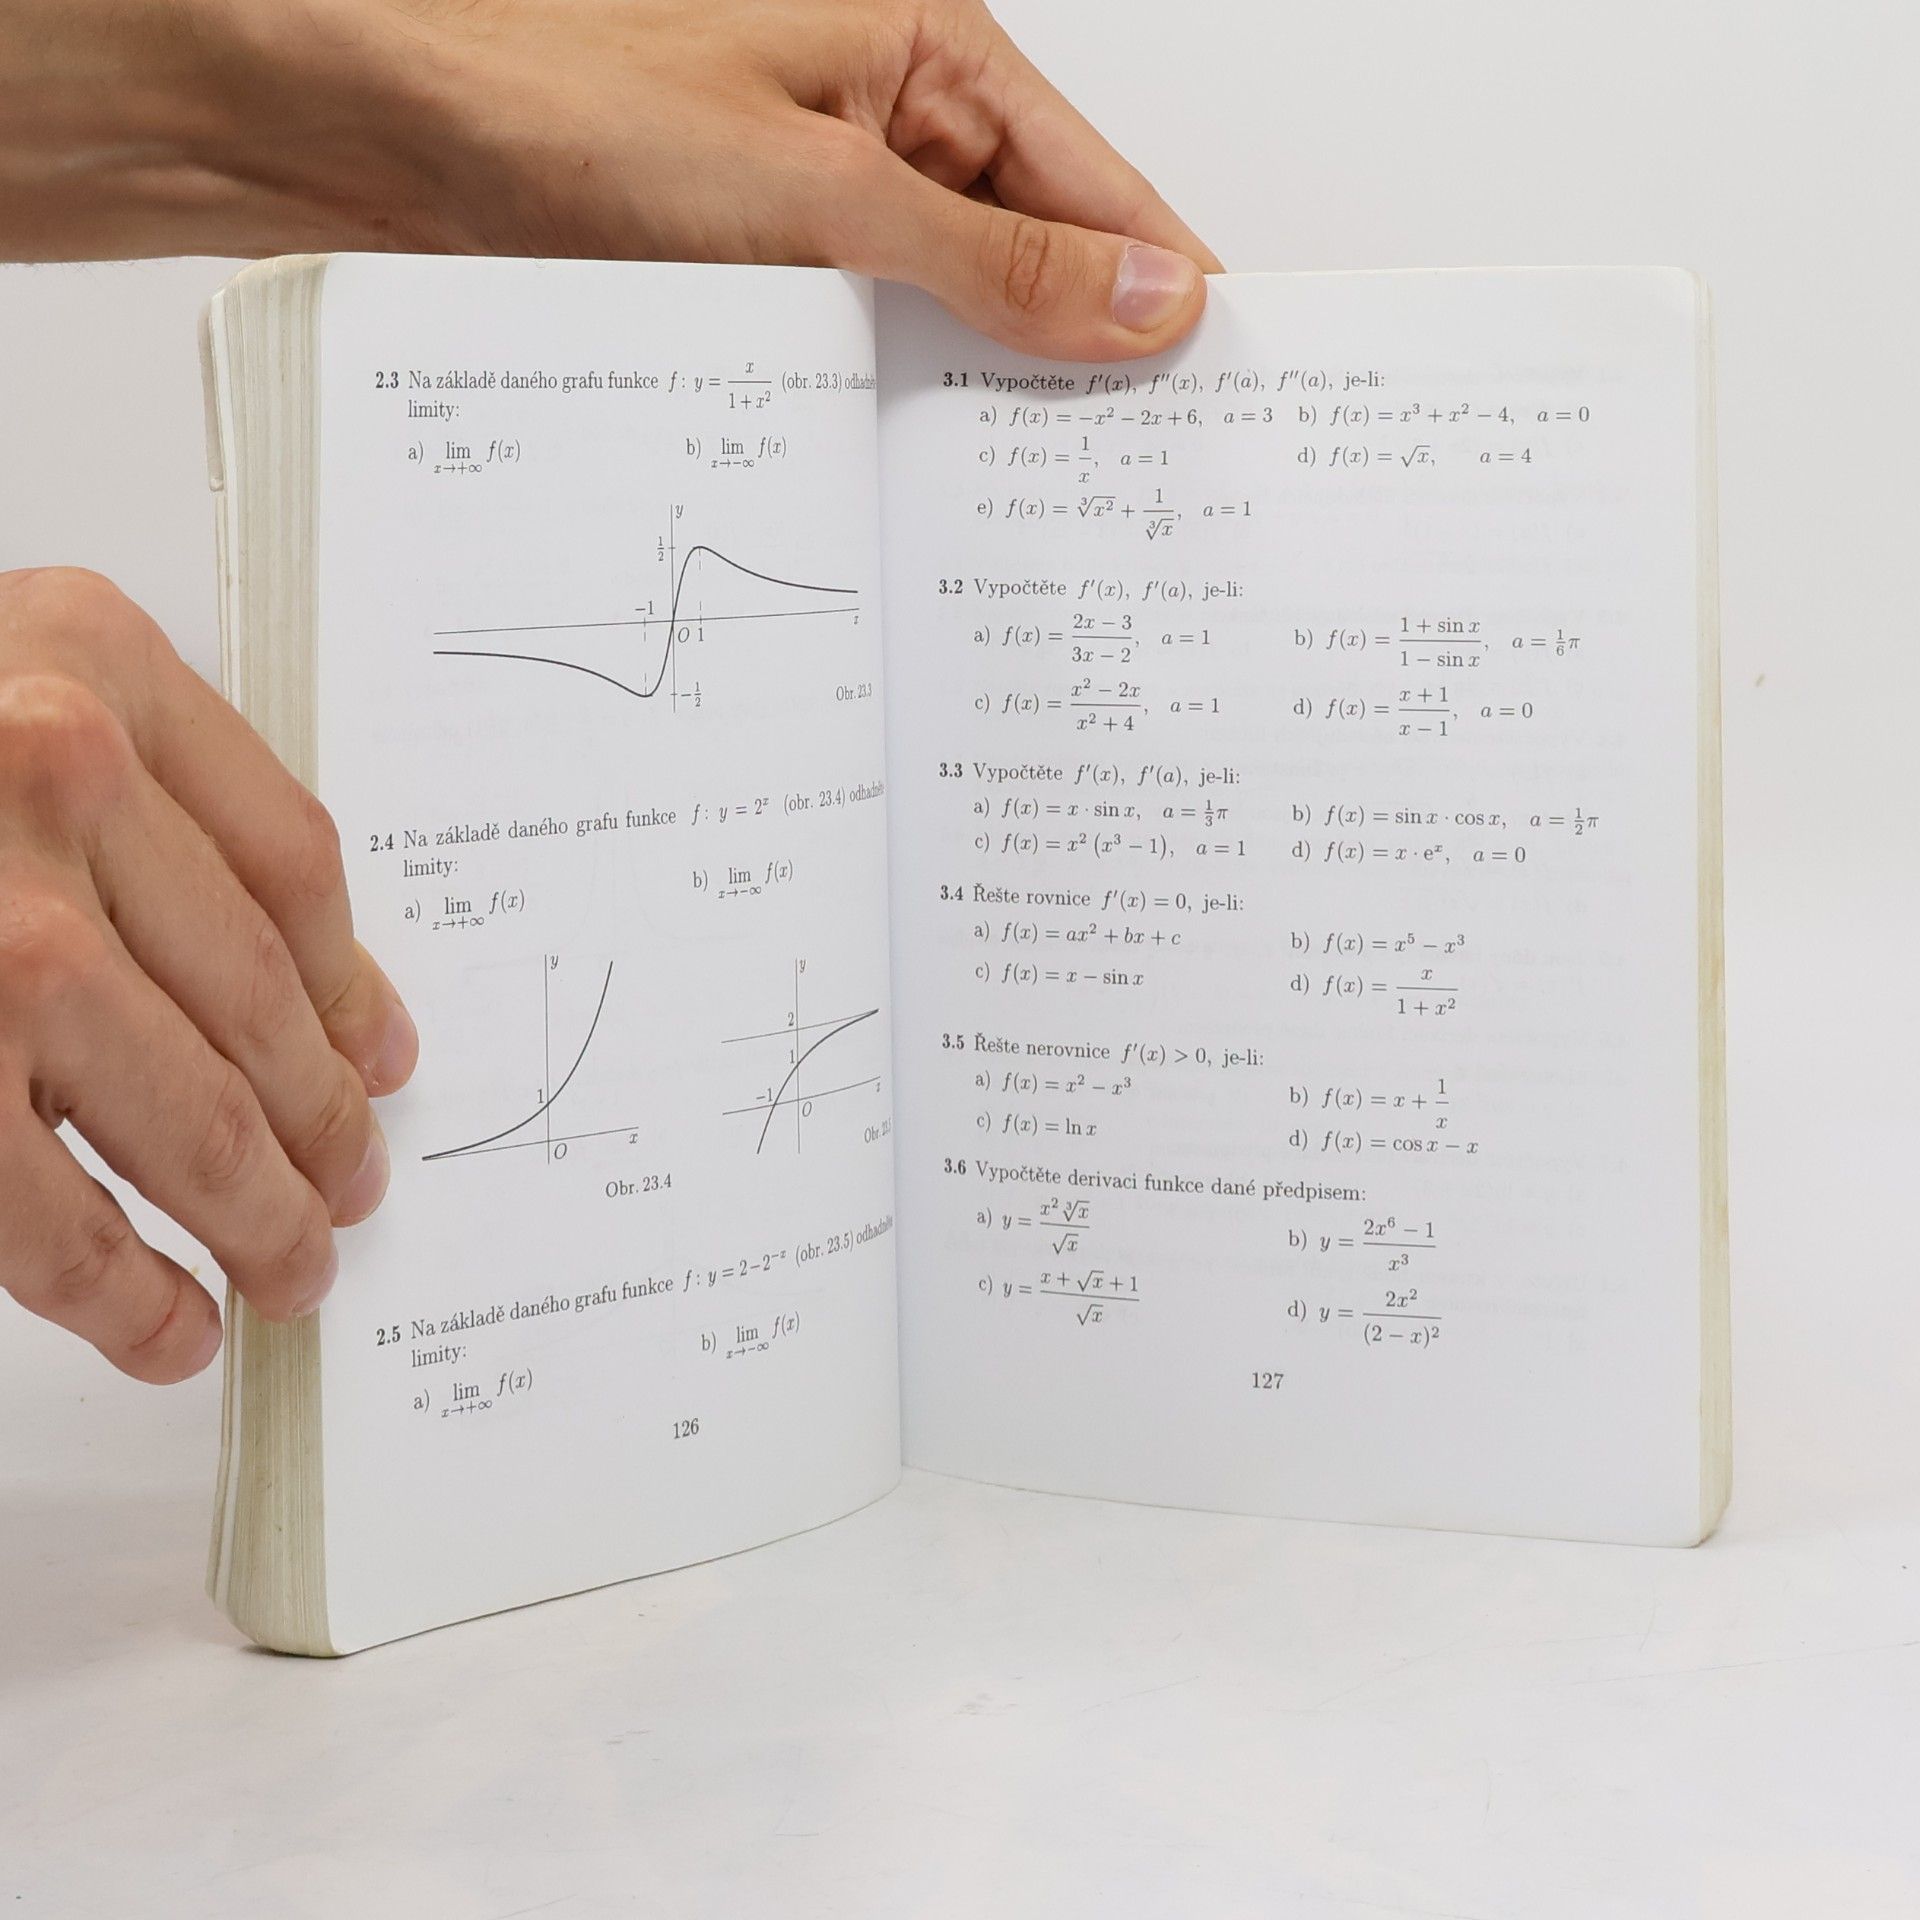 2.3 Na základě daného grafu funkce f: y = x/(1+x²) (obr. 23.3) odhadněte
limity:
a) lim x→+∞ f(x) b) lim x→−∞ f(x)
y
1/2
−1
O 1
x
−1/2
Obr. 23.3
2.4 Na základě daného grafu funkce f: y = 2ˣ (obr. 23.4) odhadněte
limity:
a) lim x→+∞ f(x) b) lim x→−∞ f(x)
y
1
O
x
Obr. 23.4
y
2
1
−1
O
x
Obr. 23.5
2.5 Na základě daného grafu funkce f: y = 2−2⁻ˣ (obr. 23.5) odhadněte
limity:
a) lim x→+∞ f(x) b) lim x→−∞ f(x)
126
3.1 Vypočtěte f′(x), f″(x), f′(a), f″(a), je-li:
a) f(x) = −x² − 2x + 6, a = 3 b) f(x) = x³ + x² − 4, a = 0
c) f(x) = 1/x, a = 1 d) f(x) = √x, a = 4
e) f(x) = ∛x² + 1/∛x, a = 1
3.2 Vypočtěte f′(x), f′(a), je-li:
a) f(x) = (2x − 3)/(3x − 2), a = 1 b) f(x) = (1 + sin x)/(1 − sin x), a = 1/6 π
c) f(x) = (x² − 2x)/(x² + 4), a = 1 d) f(x) = (x + 1)/(x − 1), a = 0
3.3 Vypočtěte f′(x), f′(a), je-li:
a) f(x) = x · sin x, a = 1/3 π b) f(x) = sin x · cos x, a = 1/2 π
c) f(x) = x² (x³ − 1), a = 1 d) f(x) = x · eˣ, a = 0
3.4 Řešte rovnice f′(x) = 0, je-li:
a) f(x) = ax² + bx + c b) f(x) = x⁵ − x³
c) f(x) = x − sin x d) f(x) = x/(1 + x²)
3.5 Řešte nerovnice f′(x) > 0, je-li:
a) f(x) = x² − x³ b) f(x) = x + 1/x
c) f(x) = ln x d) f(x) = cos x − x
3.6 Vypočtěte derivaci funkce dané předpisem:
a) y = x² ∛x/√x b) y = (2x⁶ − 1)/x³
c) y = (x + √x + 1)/√x d) y = 2x²/(2 − x)²
127